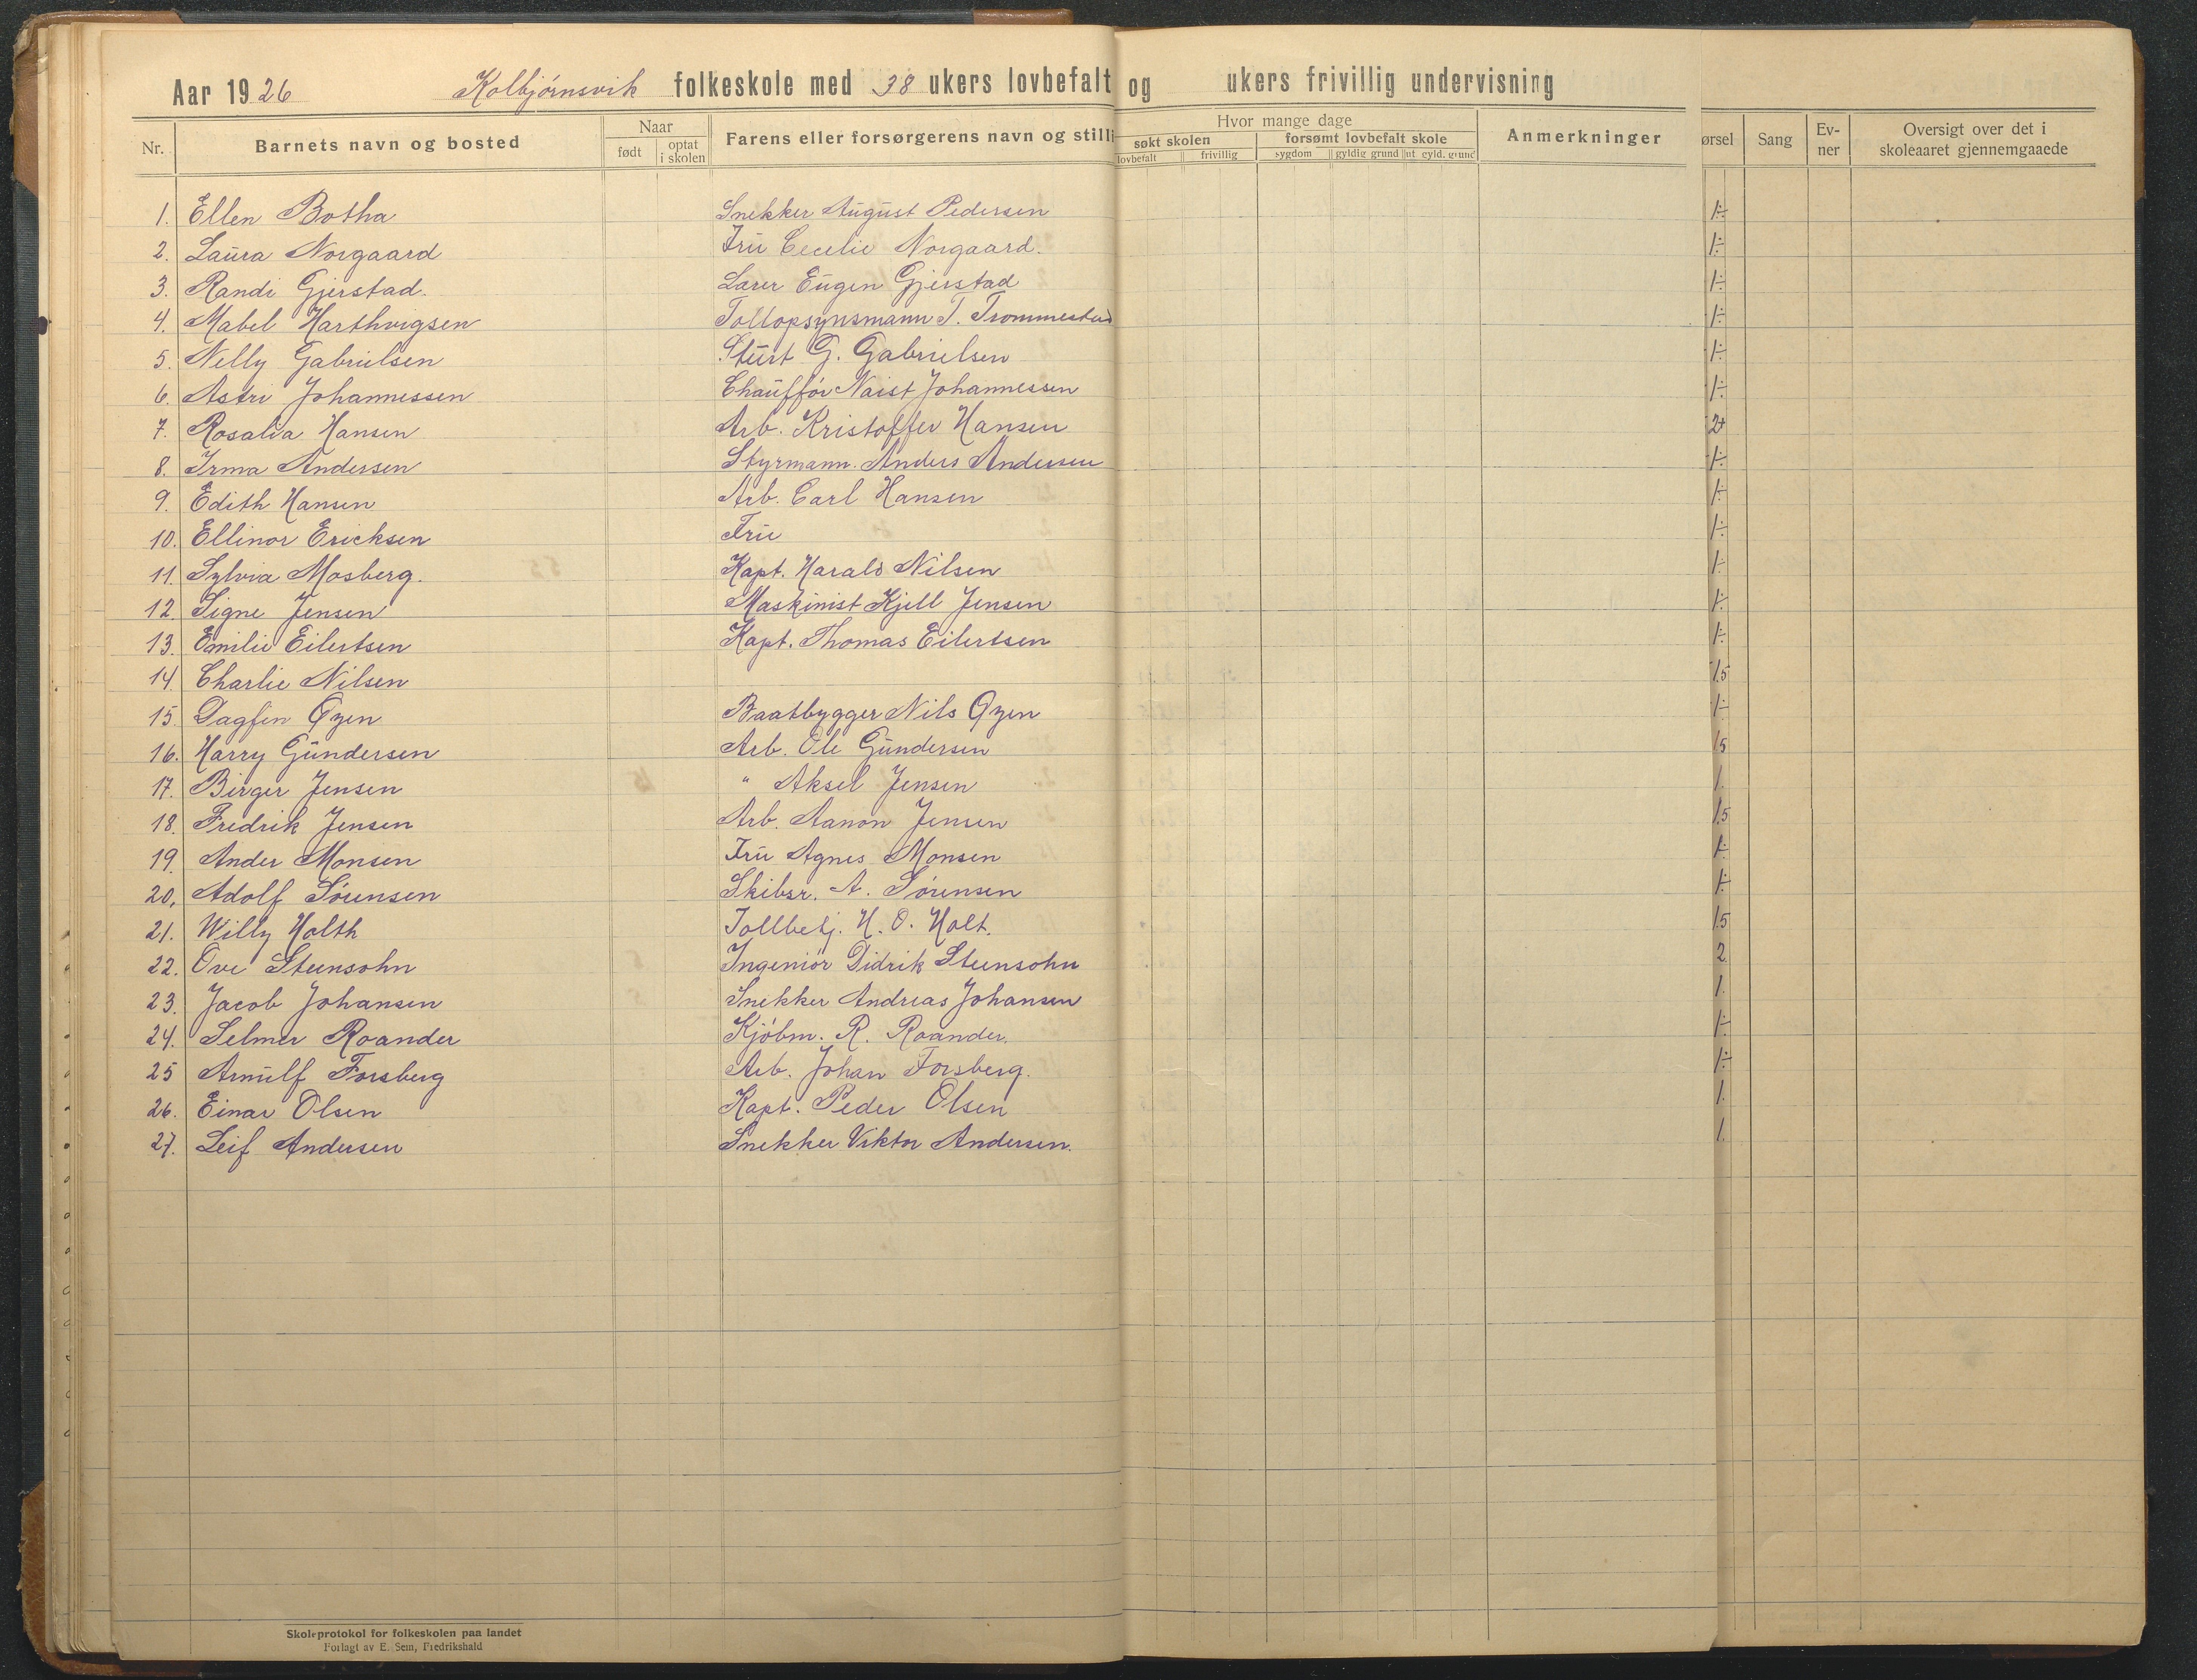 Aar 1926 Kolbjørnsvik folkeskole med 38 ukers lovbefalt og ukers frivillig undervisning
Nr. Barnets navn og bosted Naar født optat i skolen Farens eller forsørgerens navn og stilli Hvor mange dage søkt skolen lovbefalt frivillig forsømt lovbefalt skole sygdom gyldig grund ut. gyld. grund Anmerkninger ørsel Sang Ev-ner Oversigt over det i skoleaaret gjennemgaaede
1. Ellen Botha Snekker August Pedersen 1÷
2. Laura Norgaard Fru Cecelie Norgaard. 1÷
3. Randi Gjerstad. Lærer Eugen Gjerstad 1÷
4. Mabel Harthvigsen Tollopsynsmann T. Trommestad 1÷
5. Nelly Gabrielsen Stuert G. Gabrielsen 1÷
6. Astri Johannessen Chauffør Johannessen 1÷
7. Rosalia Hansen Arb. Kristoffer Hansen 2+
8. Irma Andersen Styrmann. Anders Andersen 1÷
9. Edith Hansen Arb. Carl Hansen 1÷
10. Ellinor Ericksen Fru 1÷
11. Sylvia Mosberg. Kapt. Harald Nilsen 1÷
12. Signe Jensen Maskinist Kjell Jensen 1÷
13. Emilie Eilertsen Kapt. Thomas Eilertsen 1÷
14. Charlie Nilsen 1.5
15. Dagfin Øzen Baatbygger Nils Øzen 1÷
16. Harry Gundersen Arb. Ole Gundersen 1.5
17. Birger Jensen " Aksel Jensen 1.
18. Fredrik Jensen Arb. Aanon Jensen 1.5
19. Ander Monsen Fru Agnes Monsen 1÷
20. Adolf Sørensen Skibsr. A. Sørensen 1÷
21. Willy Holth Tollbetj. H. O. Holt. 1.5
22. Ove Steensohn Ingeniør Didrik Steensohn 2
23. Jacob Johansen Snekker Andreas Johansen 1.
24. Selmer Roander Kjøbm. R. Roander. 1÷
25 Arnulf Forsberg Arb. Johan Forsberg. 1÷
26. Einar Olsen Kapt. Peder Olsen 1.
27. Leif Andersen Snekker Viktor Andersen. 1.
Skoleprotokol for folkeskolen paa landet
Forlagt av E. Sem, Fredrikshald